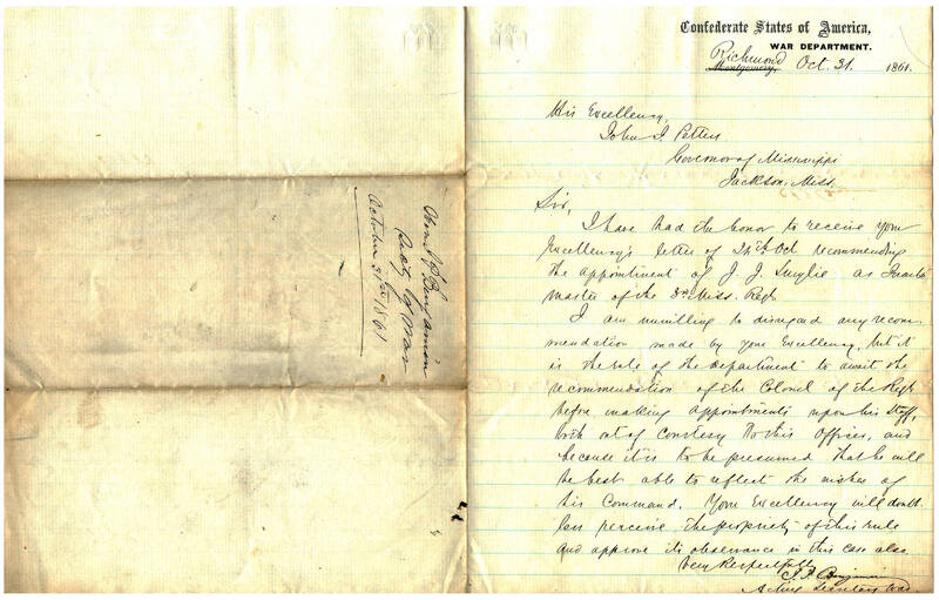 Confederate States of America,
WAR DEPARTMENT.
Richmond
Montgomery, Oct. 31. 1861.
His Excellency,
John J. Pettus
Governor of Mississippi
Jackson, Miss.
Sir,
I have had the honor to receive your
Excellency's letter of 24th Oct recommending
the appointment of J. J. as Quarter
master of the 3rd Miss. Regt
I am unwilling to disregard any recom-
mendation made by your Excellency, but it
is the rule of the department to await the
recommendation of the Colonel of the Regt
before making appointments upon his Staff,
both out of courtesy to this Officer, and
because it is to be presumed that he will
be best able to reflect the wishes of
his Command. Your Excellency will doubt
less perceive the propriety of this rule
and approve its observance in this case also
Very Respectfully
J. P. Benjamin
Acting Secretary War
Hon. J P Benjamin
Secty of War
October 31st 1861